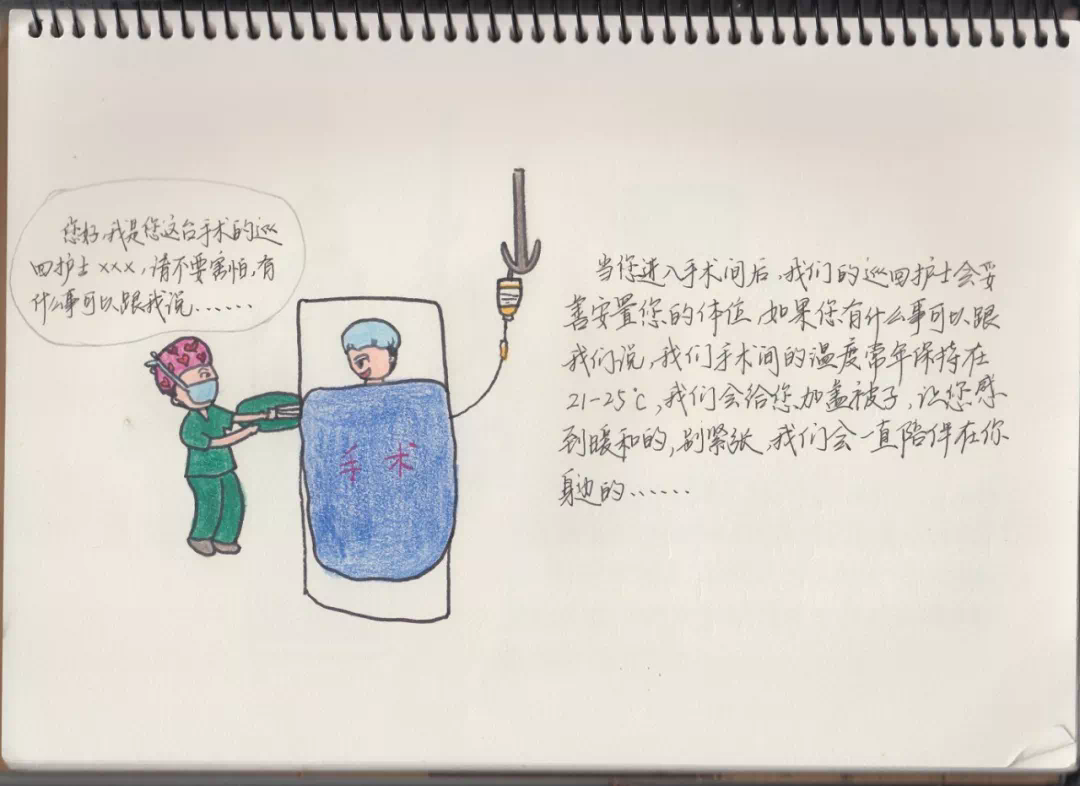 您好,我是您这台手术的巡
回护士xxx,请不要害怕,有
什么事可以跟我说......
手术
当您进入手术间后,我们的巡回护士会妥
善安置您的体位,如果您有什么事可以跟
我们说,我们手术间的温度常年保持在
21-25℃,我们会给您加盖被子,让您感
到暖和的,别紧张,我们会一直陪伴在你
身边的......